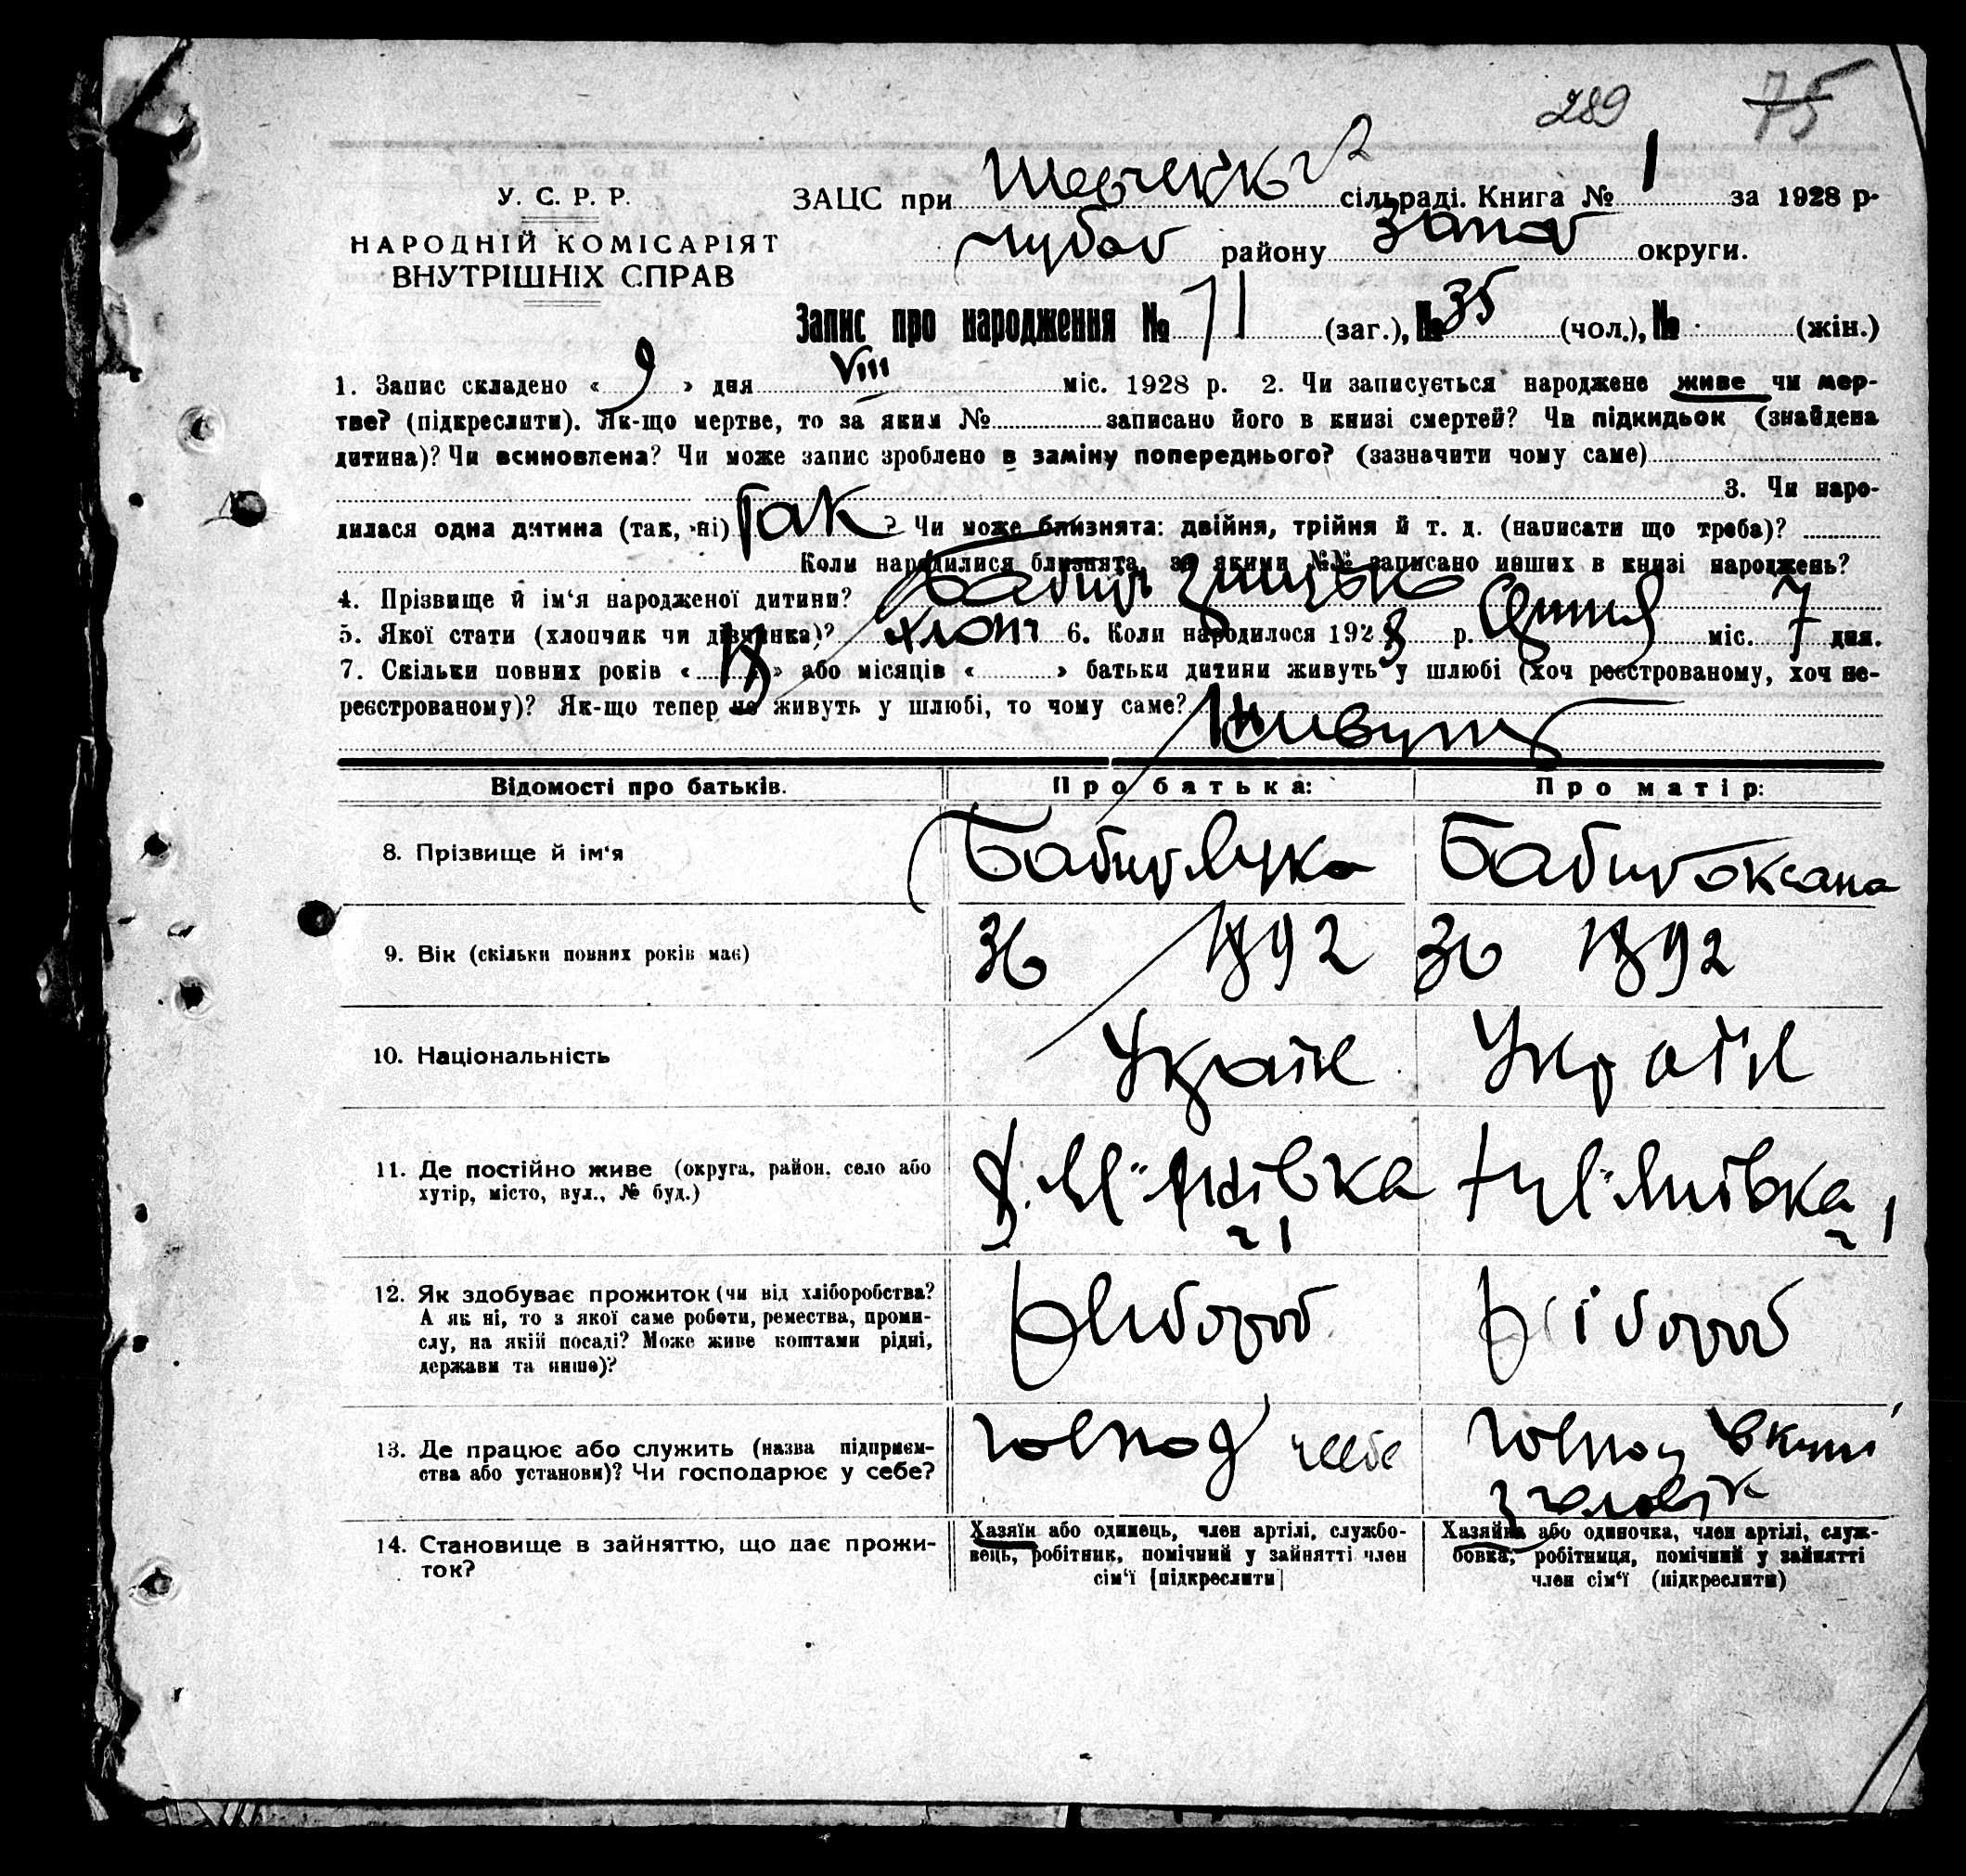 289 75
У. С. Р. Р.
НАРОДНІЙ КОМІСАРІЯТ
ВНУТРІШНІХ СПРАВ
ЗАЦС при сільраді. Книга № 1 за 1928 р.
району округи.
Запис про народження № 71 (заг.), № 35 (чол.), № (жін.)
1. Запис складено « 9 » дня VIII міс. 1928 р. 2. Чи записується народжене живе чи мер-
тве? (підкреслити). Як-що мертве, то за яким № записано його в книзі смертей? Чи підкидьок (знайдена
дитина)? Чи всиновлена? Чи може запис зроблено в заміну попереднього? (зазначити чому саме)
3. Чи наро-
дилася одна дитина (так, ні) Так ? Чи може близнята: двійня, трійня й т. д. (написати що треба)?
Коли народилися близнята, за якими №№ записано инших в книзі народжень?
4. Прізвище й ім‘я народженої дитини?
5. Якої стати (хлопчик чи дівчинка)? хлоп 6. Коли народилося 1928 р. міс. 7 дня.
7. Скільки повних років « » або місяців « » батьки дитини живуть у шлюбі (хоч реєстрованому, хоч не-
реєстрованому)? Як-що тепер не живуть у шлюбі, то чому саме? Живуть
Відомості про батьків. Про батька: Про матір:
8. Прізвище й ім‘я Бабич Лука Бабич Оксана
9. Вік (скільки повних років має) 36 1892 36 1892
10. Національність Україн Україн
11. Де постійно живе (округа, район, село або
хутір, місто, вул., № буд.)
12. Як здобуває прожиток (чи від хліборобства?
А як ні, то з якої саме роботи, ремества, проми-
слу, на якій посаді? Може живе коштами рідні,
держави та инше)?
хлібороб хлібороб
13. Де працює або служить (назва підприєм-
ства або установи)? Чи господарює у себе?
14. Становище в зайняттю, що дає прожи-
ток?
Хазяїн або одинець, член артілі, службо-
вець, робітник, помічний у зайнятті член
сім‘ї [підкреслити]
Хазяйка або одиночка, член артілі, служ-
бовка, робітниця, помічний у зайнятті
член сім‘ї (підкреслити)